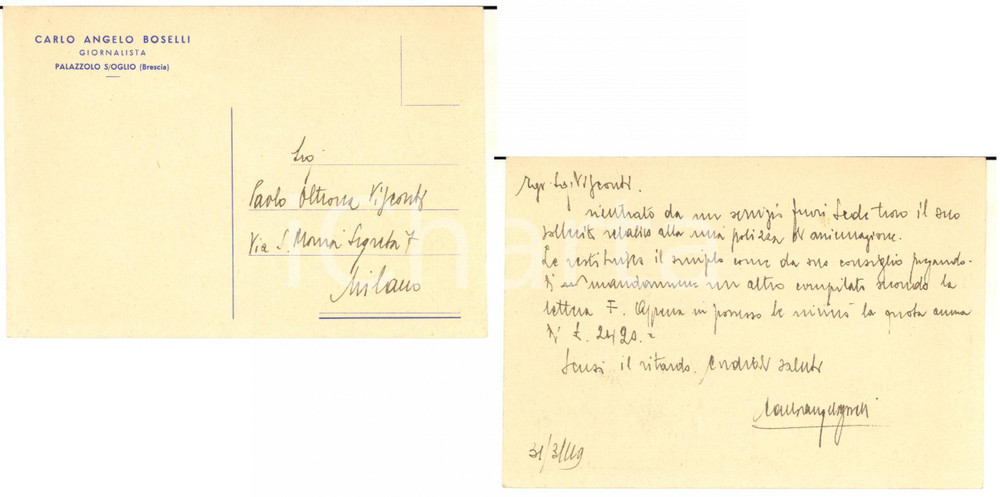 CARLO ANGELO BOSELLI
GIORNALISTA
PALAZZOLO S/OGLIO (Brescia)
Sig.
Paolo Oltrona Visconti
Via S. Maria Segreta 7
Milano
Egr. Sig. Visconti.
rientrato da un servizio fuori Sede trovo il suo
sollecito relativo alla mia polizza di assicurazione.
Le restituisco il modulo come da suo consiglio pregando-
La mandarmene un altro compilato secondo la
lettera F. Appena in possesso Le invierò la quota annua
di £. 2420.=
Scusi il ritardo. Cordiali saluti
Carlo Angelo Boselli
31/3/49